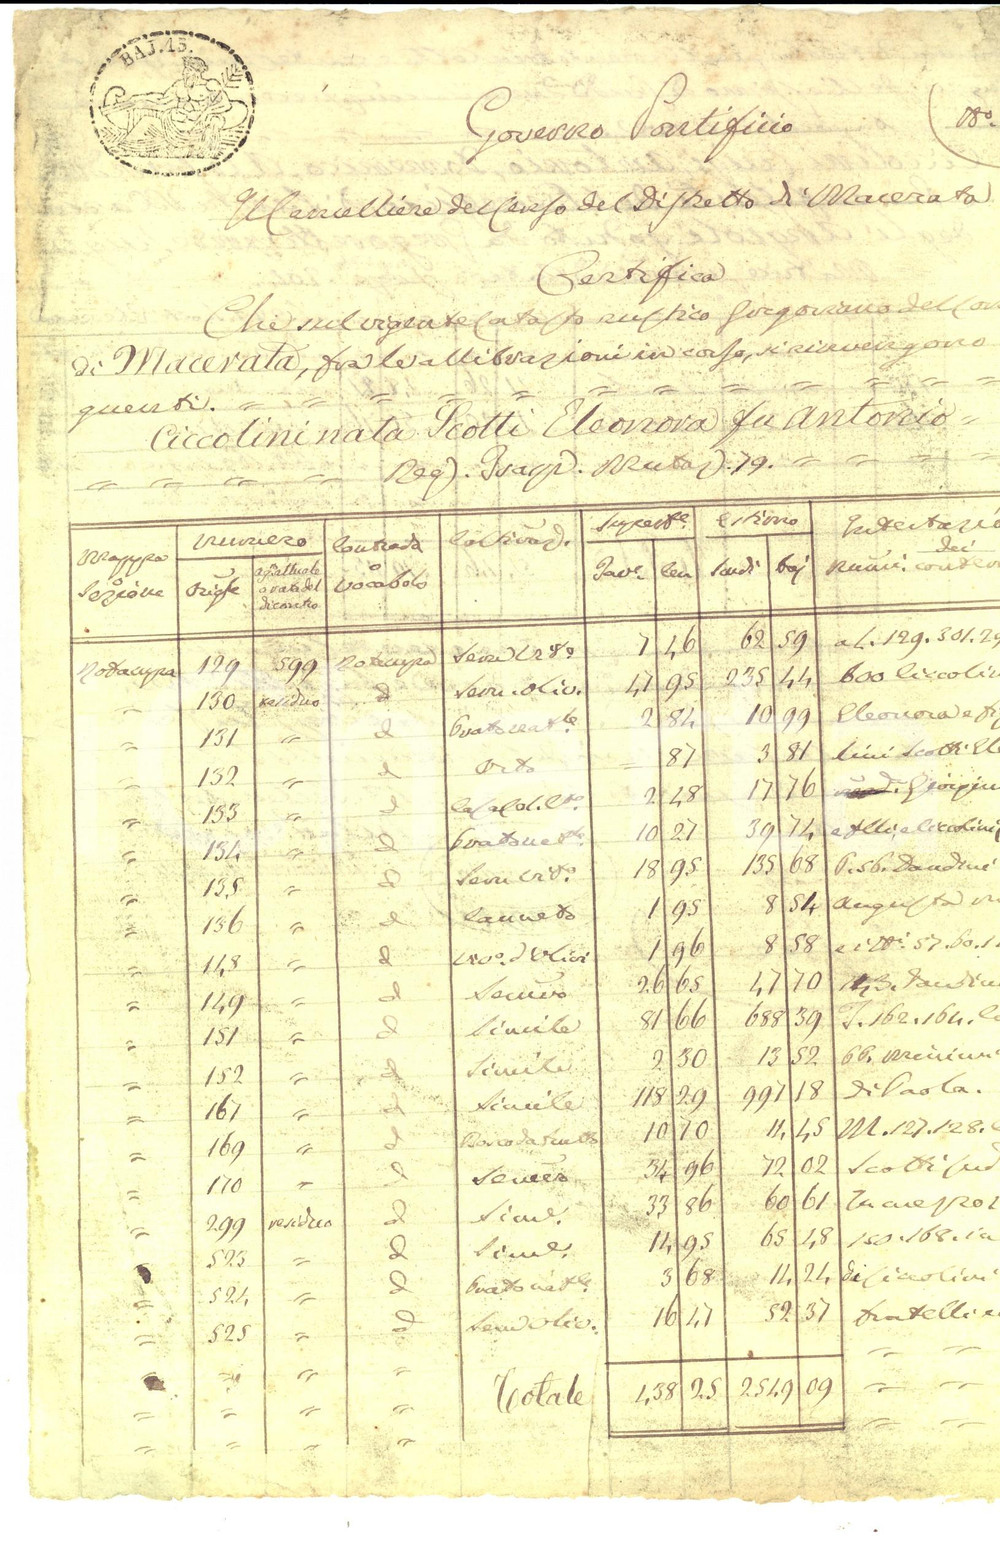 BAJ. 15.
Governo Pontificio
180
Il Cancelliere del Censo del Distretto di Macerata
Certifica
Che nel vigente Catasto rustico Gregoriano del Com
di Macerata, fra le allibrazioni in corso, si rinvengono
guenti.
Ciccolini nata Scotti Eleonora fu Antonio =
Reg. Trasp. Mutaz. 79.
Mappa o Sezione | Numero | Contrada o Vocabolo | Coltivaz. | Superf.e | Estimo | Intestazio
Orig.le | Tav.e | Cen | Scudi | Baj | Num. dei confin
Rotacupa 129 599 Rotacupa Sem.Vit.o 7 46 62 59 a L. 129. 301. 29
" 130 residuo d Sem. Oliv. 41 95 235 44 600 Ciccolin
" 131 " d Prato nat.le 2 84 10 99 Eleonora e fig
" 132 " d Orto = 87 3 81 lini Scotti Ele
" 133 " d Casa Col. 2 48 17 76 Giovan
" 134 " d Prato nat.le 10 27 39 74 e f.lli, e Ciccolini
" 135 " d Sem.Vit.o 18 95 135 68 P. 56. Dandini
" 136 " d Canneto 1 95 8 54 Augusta
" 148 " d d'Olivi 1 96 8 58 57. 60.
" 149 " d Semivo 26 65 47 70 143. Dandini
" 151 " d Simile 81 66 688 39 I. 162. 164.
" 152 " d Simile 2 30 13 52 PP. Minimi
" 167 " d Simile 118 29 997 18 di Paola.
" 169 " d Bosco da frutto 10 70 11 45 M. 127. 128.
" 170 " d Semivo 34 96 72 02 Scotti sud
" 299 residuo d Sim.e 33 86 60 61
" 523 " d Sim.e 14 95 65 48 150. 168.
" 524 " d Prato nat.le 3 68 14 24 di Ciccolini
" 525 " d Sem. Oliv. 16 47 52 37 fratelli
Totale 438 25 2549 09